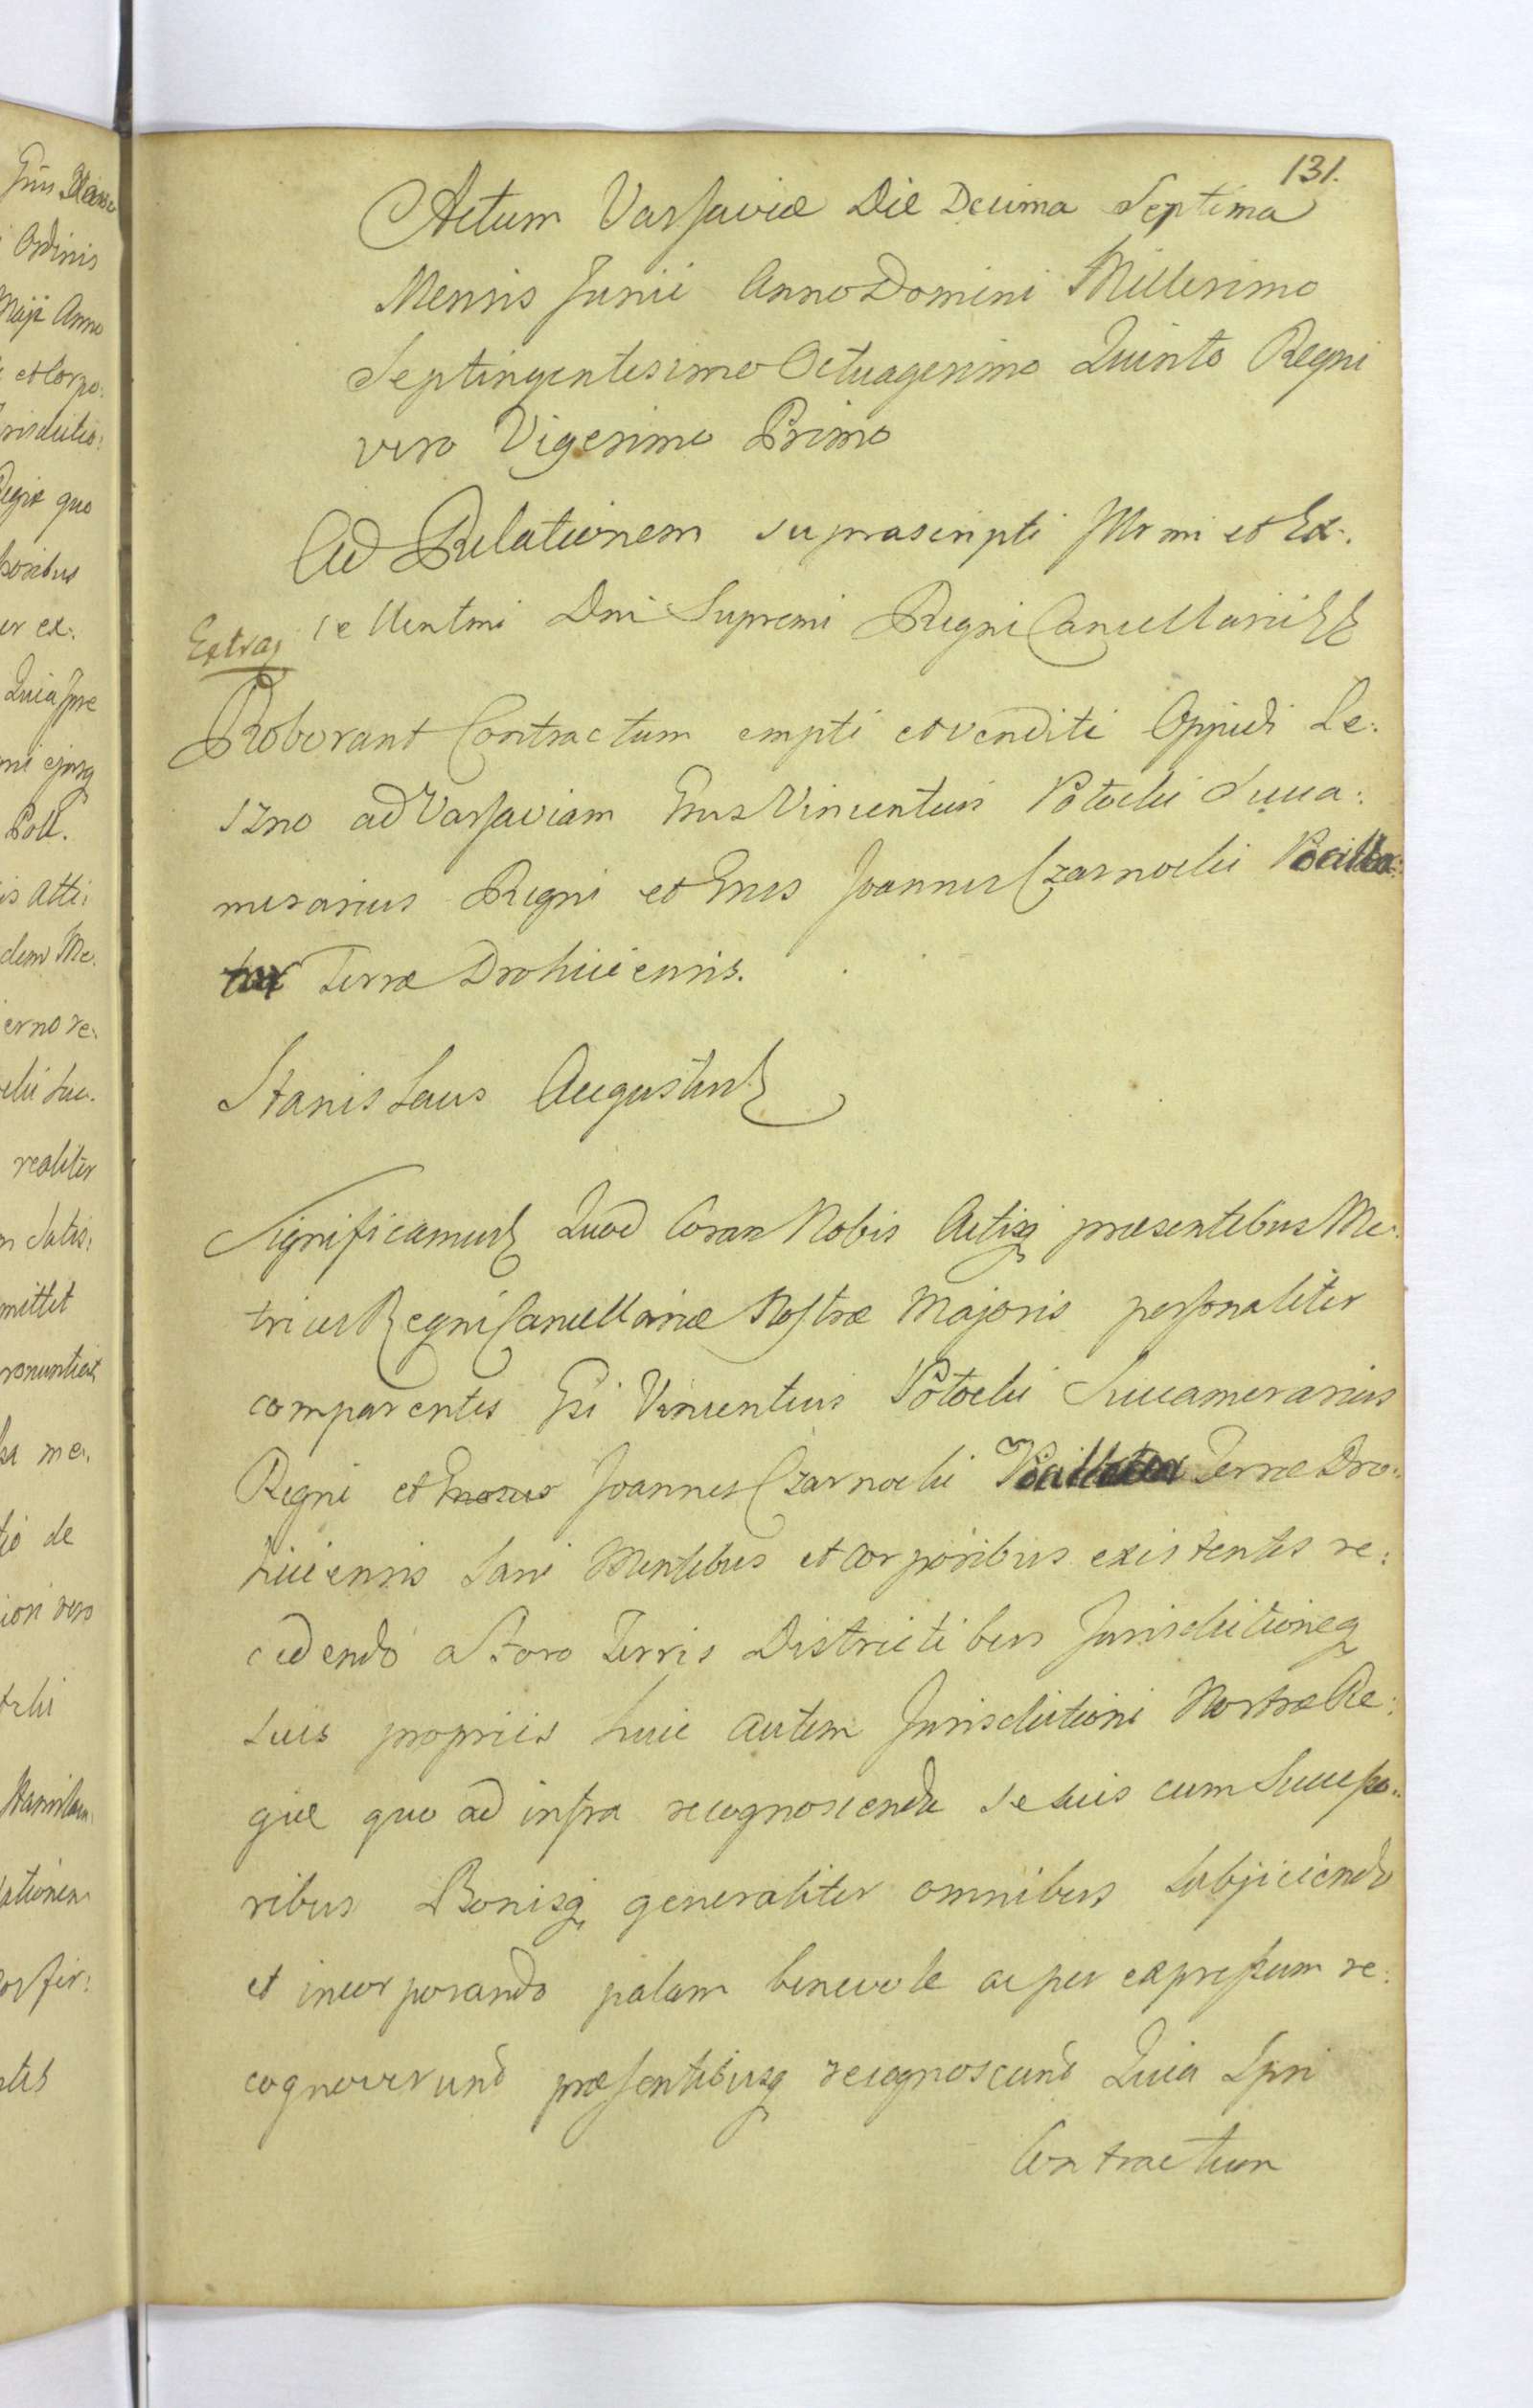 131.
Actum Varsaviæ Die Decima Septima
Mensis Junii Anno Domini Millesimo
Septingentesimo Octuagesimo Quinto Regni
vero Vigesimo Primo
Ad Relationem suprascripti Illrmi et Ex:
cellentmi Dni Supremi Regni Cancellarii
Extra
Roborant Contractum empti et venditi Oppidi Le:
szno ad Varsaviam Gnus Vincentius Potocki Succa:
merarius Regni et Gnus Joannes Czarnocki
Terræ Drohiciensis.
Stanislaus Augustus
Significamus Quod Coram Nobis Actisq præsentibus Me:
trices Regni Cancellariæ Nostræ Majoris personaliter
comparentes Gsi Vincentius Potocki Succamerarius
Regni et Joannes Czarnocki Terræ Dro:
hiciensis Sani Mentibus et corporibus existentes re:
cedendo a Foro Terris Districtibus Jurisdictioneq
suis propriis huic autem Jurisdictioni Nostræ Re:
giæ quo ad infra recognoscenda se suis cum Succeso:
ribus Bonisq generaliter omnibus subjiciendo
et incorporando palam benevole ac per expressum re:
cognoverunt præsentibusq recognoscunt Quia Ipsi
Contractum
Ordinis
Maji Anno
et Corpo:
Regiæ quo
er ex:
Quia Ipse
Poll.
is atti:
dem Me:
erno re:
realiter
mittet